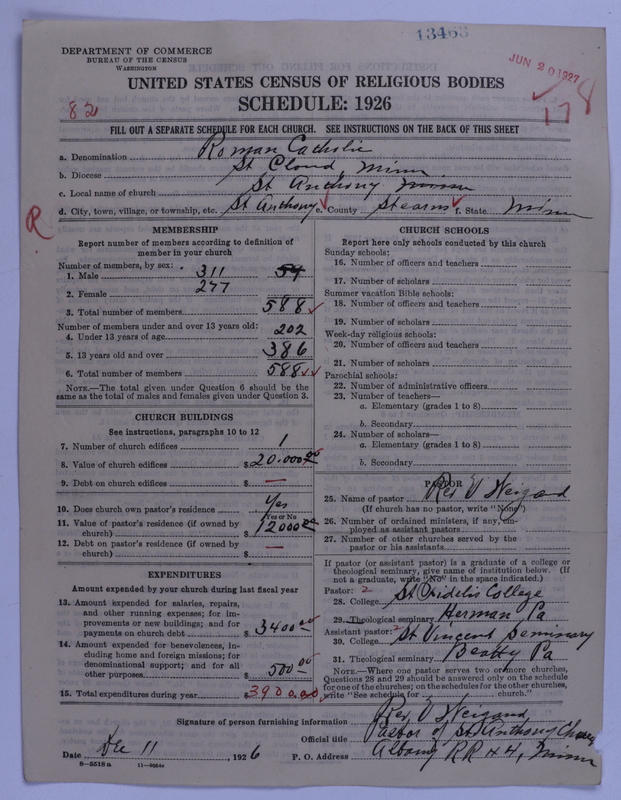 13463
DEPARTMENT OF COMMERCE
BUREAU OF THE CENSUS
WASHINGTON
JUN 20 1927
UNITED STATES CENSUS OF RELIGIOUS BODIES
SCHEDULE: 1926
82
178
FILL OUT A SEPARATE SCHEDULE FOR EACH CHURCH. SEE INSTRUCTIONS ON THE BACK OF THIS SHEET
a. Denomination Roman Catholic
b. Diocese St Cloud, Minn
c. Local name of church St Anthony Minn
d. City, town, village, or township, etc. St Anthony e. County Stearns f. State Minn
R
MEMBERSHIP
Report number of members according to definition of
member in your church
Number of members, by sex:
1. Male 311 54
2. Female 277
3. Total number of members 588
Number of members under and over 13 years old:
4. Under 13 years of age 202
5. 13 years old and over 386
6. Total number of members 588
NOTE.—The total given under Question 6 should be the
same as the total of males and females given under Question 3.
CHURCH BUILDINGS
See instructions, paragraphs 10 to 12
7. Number of church edifices 1
8. Value of church edifices $20.000 00
9. Debt on church edifices $ —
10. Does church own pastor's residence? Yes
Yes or No
11. Value of pastor's residence (if owned by
church) $12000 00
12. Debt on pastor's residence (if owned by
church) $ —
EXPENDITURES
Amount expended by your church during last fiscal year
13. Amount expended for salaries, repairs,
and other running expenses; for im-
provements or new buildings; and for
payments on church debt $3400 00
14. Amount expended for benevolences, in-
cluding home and foreign missions; for
denominational support; and for all
other purposes $500 00
15. Total expenditures during year $3900.00
CHURCH SCHOOLS
Report here only schools conducted by this church
Sunday schools:
16. Number of officers and teachers
17. Number of scholars
Summer vacation Bible schools:
18. Number of officers and teachers
19. Number of scholars
Week-day religious schools:
20. Number of officers and teachers
21. Number of scholars
Parochial schools:
22. Number of administrative officers
23. Number of teachers—
a. Elementary (grades 1 to 8)
b. Secondary
24. Number of scholars—
a. Elementary (grades 1 to 8)
b. Secondary
PASTOR
25. Name of pastor Rev V Weigand
(If church has no pastor, write "None")
26. Number of ordained ministers, if any, em-
ployed as assistant pastors
27. Number of other churches served by the
pastor or his assistants
If pastor (or assistant pastor) is a graduate of a college or
theological seminary, give name of institution below. (If
not a graduate, write "No" in the space indicated.)
Pastor: 2
28. College St Fidelis College
29. Theological seminary Herman, Pa
Assistant pastor: 2
30. College St Vincent Seminary
31. Theological seminary Beatty Pa
NOTE.—Where one pastor serves two or more churches,
Questions 28 and 29 should be answered only on the schedule
for one of the churches; on the schedules for the other churches,
write "See schedule for church."
Signature of person furnishing information Rev V Weigand
Official title Pastor of St. Anthony Church
Date Dec 11, 1926 P. O. Address Albany RR #4, Minn
8—5518a 11—9664